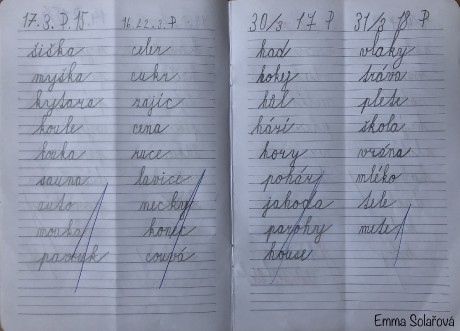 17. 3. P 15.
šiška
myška
kytara
koule
kouka
sauna
auto
mouka
pavouk
16. 22. 3. P
celer
cukr
zajíc
cena
ruce
lavice
necky
konec
couvá
30/3 17 P
had
hokej
hůl
hází
hory
pohár
jahoda
parohy
house
31/3 18 P
vlaky
tráva
plete
škola
vrána
mléko
tele
mete
Emma Solařová